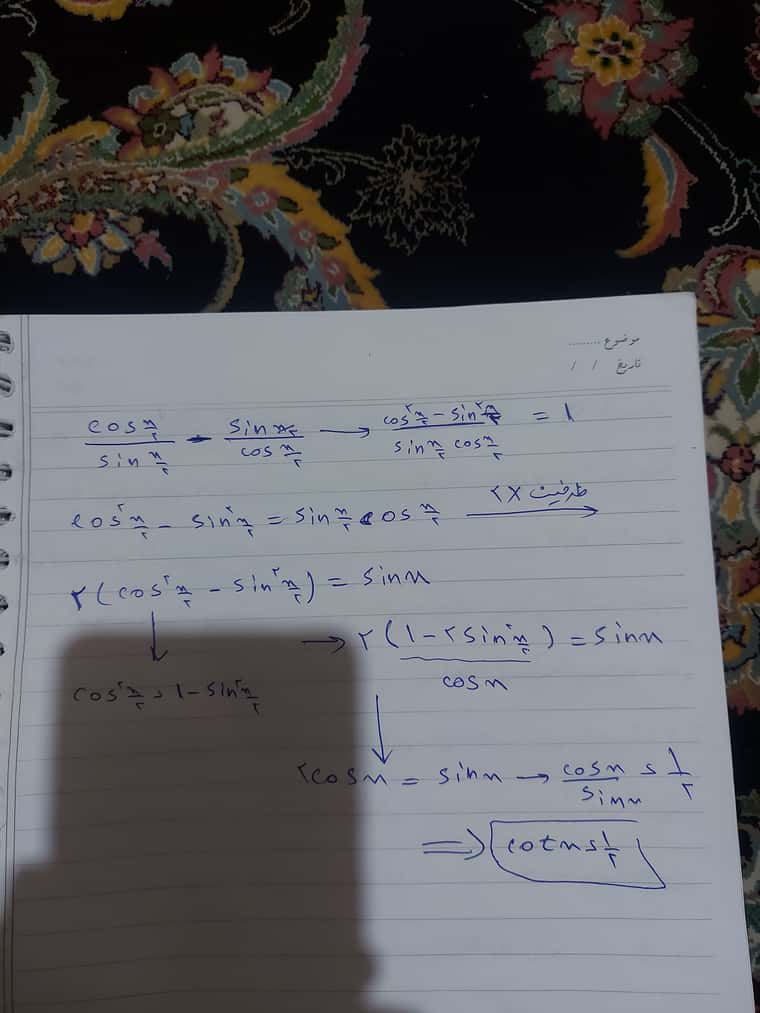 موضوع .........
تاریخ / /
cos x/۲ / sin x/۲ - sin x/۲ / cos x/۲ → cos^۲ x/۲ - sin^۲ x/۲ / sin x/۲ cos x/۲ = ۱
cos^۲ x/۲ - sin^۲ x/۲ = sin x/۲ cos x/۲ طرفین ×۲ →
۲(cos^۲ x/۲ - sin^۲ x/۲) = sin x
↓ → ۲(۱ - ۲ sin^۲ x/۲) = sin x
cos x
cos^۲ x/۲ = ۱ - sin^۲ x/۲
↓
۲cos x = sin x → cos x / sin x = ۱/۲
⇒ cot x = ۱/۲